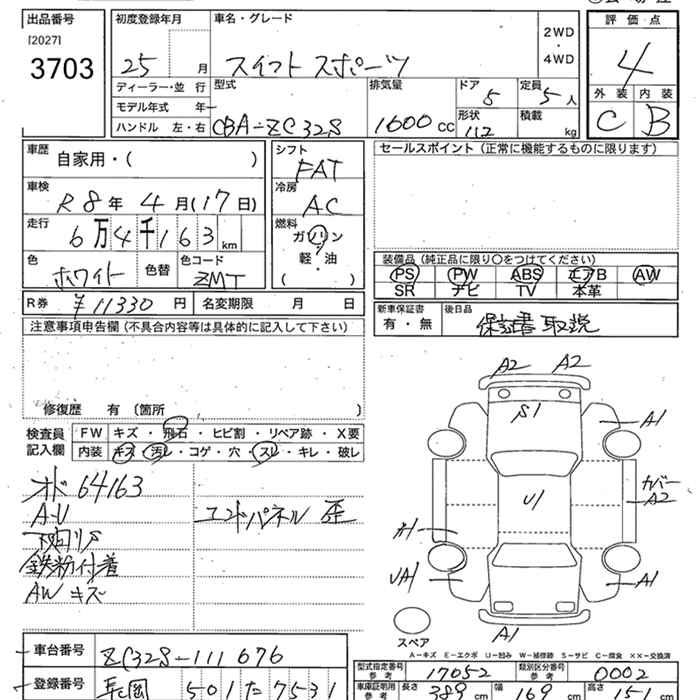 出品番号
[2027]
3703
初度登録年月
25 月
車名・グレード
スイフト スポーツ
2WD
・
4WD
評価点
4
外装 内装
C B
ディーラー・並行
モデル年式 年
ハンドル 左・右
型式
CBA-ZC32S
排気量
1600 cc
ドア
5
定員
5 人
形状
112
積載
kg
車歴
自家用・( )
車検
R8年 4月(17日)
走行
6万4千163 km
色
ホワイト
色替
色コード
ZMT
シフト
FAT
冷房
AC
燃料
ガソリン
・
軽・油
( )
セールスポイント (正常に機能するものに限ります)
装備品 (純正品に限り〇をつけてください)
PS PW ABS エアB AW
SR ナビ TV 本革
R券 ¥11330 円 名変期限 月 日
新車保証書
有・無
後日品
保証書 取説
注意事項申告欄 (不具合内容等は具体的に記入して下さい)
修復歴 有 〔箇所 〕
検査員
記入欄
FW キズ・飛石・ヒビ割・リペア跡・X要
内装 キズ・汚レ・コゲ・穴・スレ・キレ・破レ
オド 64163
A・U
下回リサ
鉄粉付着
AW キズ
エンドパネル 歪
A2 A2
S1
A1
カバー
A2
U1
A1
UA1
A1
A1
スペア
A－キズ E－エクボ U－凹み W－補修跡 S－サビ C－腐食 XX－交換済
車台番号
ZC32S-111676
登録番号
501 た 7531
型式指定番号
参考
17052
類別区分番号
参考
0002
車庫証明用
参考
長さ 389 cm 幅 169 cm 高さ 151 cm